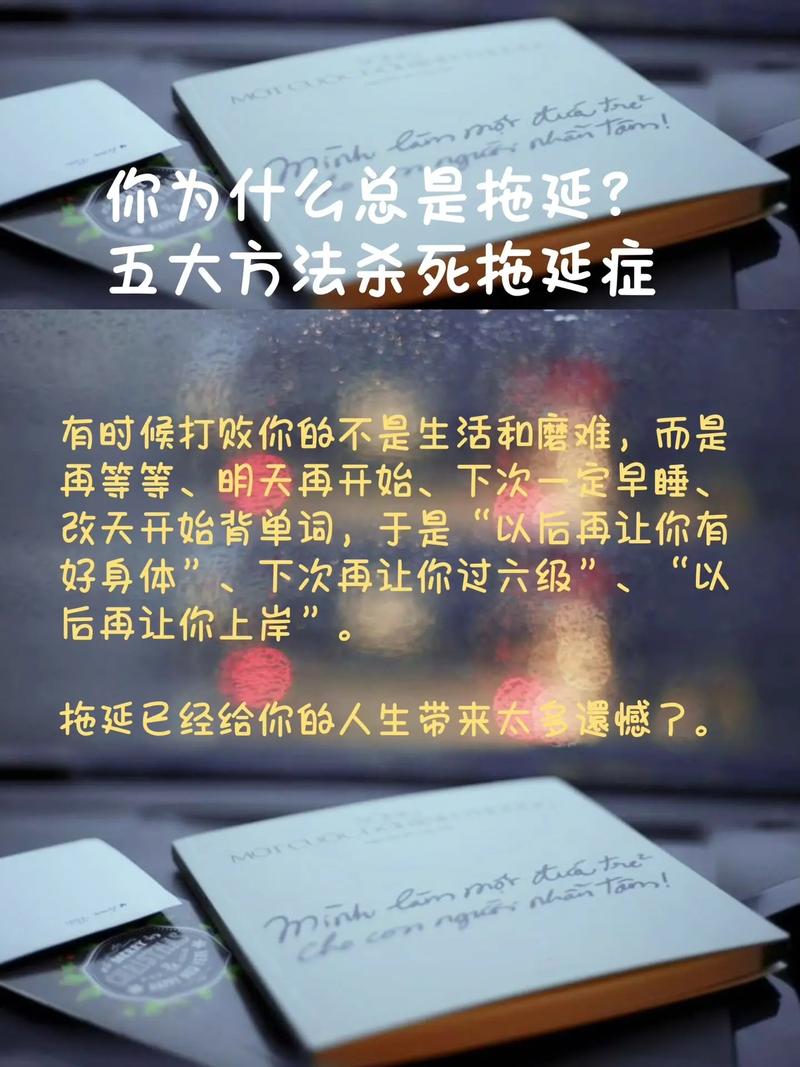 MỘT CUỘC
Mình làm một đứa trẻ
cho con người nhẫn tâm!
你为什么总是拖延?
五大方法杀死拖延症
有时候打败你的不是生活和磨难，而是
再等等、明天再开始、下次一定早睡、
改天开始背单词，于是“以后再让你有
好身体”、下次再让你过六级”、“以
后再让你上岸”。
拖延已经给你的人生带来太多還憾了。
MỘT CUỘC
Mình làm một đứa trẻ
cho con người nhẫn tâm!